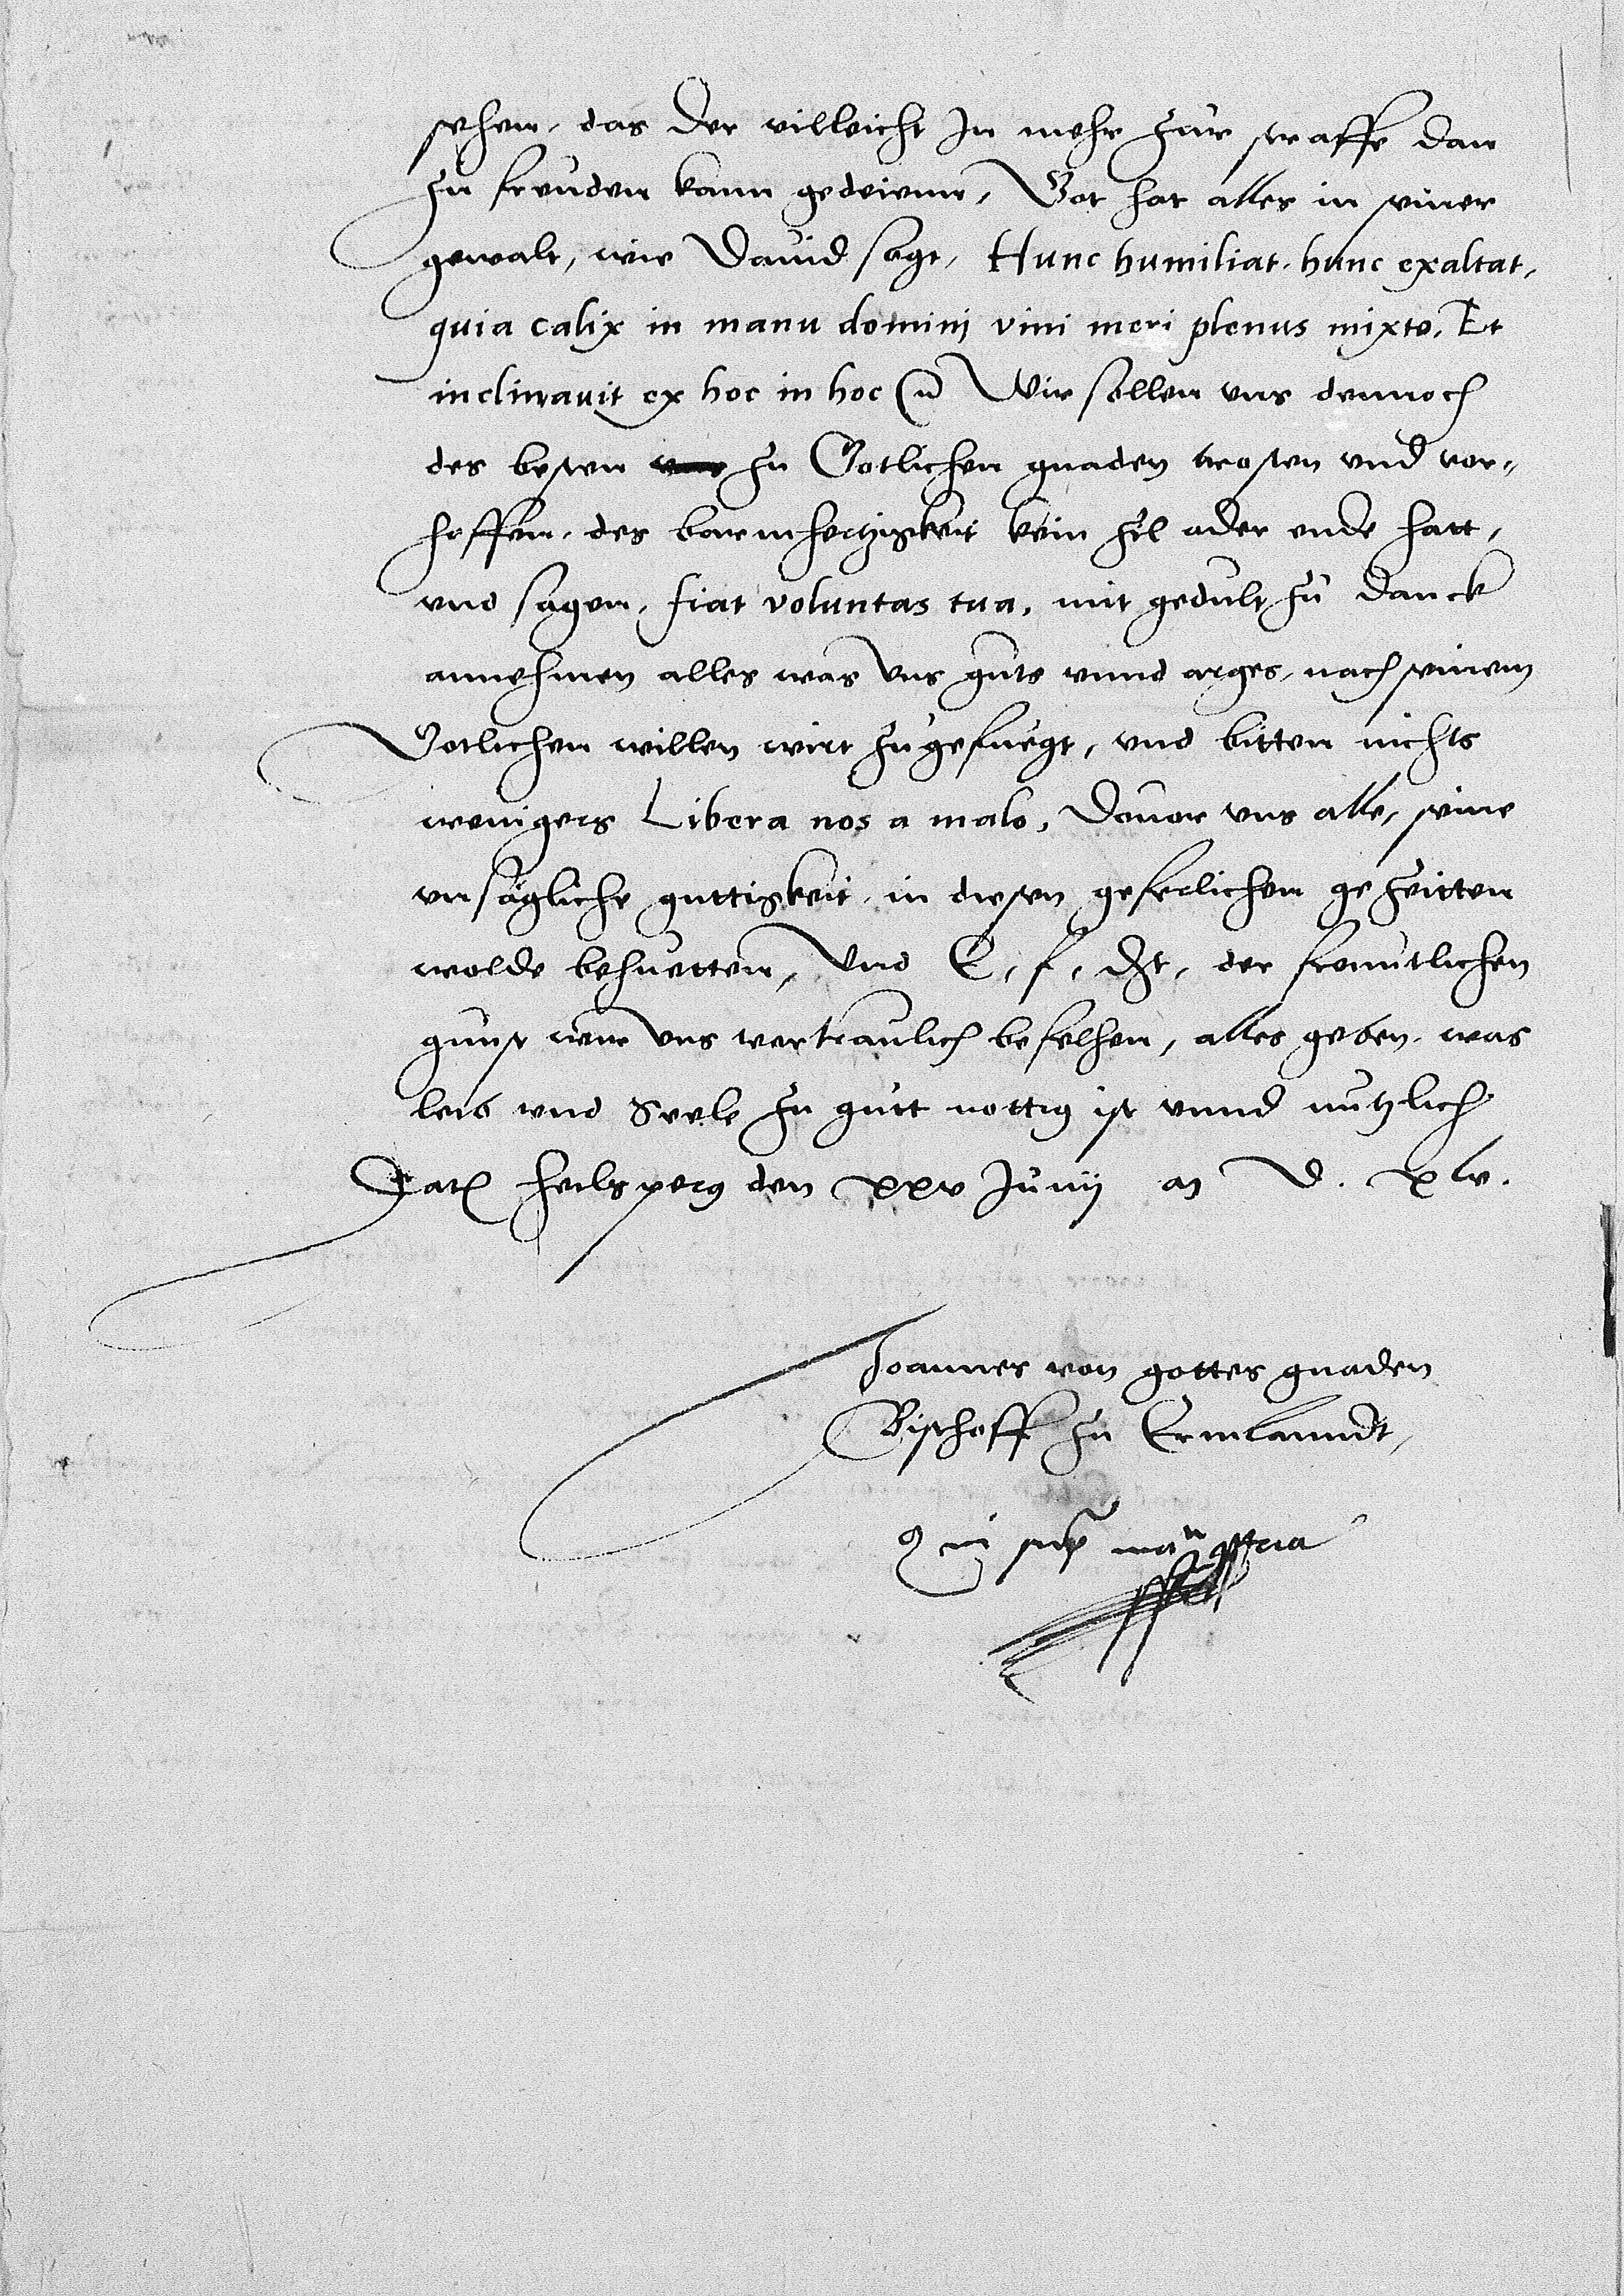 sehen, das der villeicht in mehr zur straffe dan
zu freuden kann gedeienn, Got hat alles in seiner
gewalt, wie Dauid sagt, Hunc humiliat, hunc exaltat,
quia calix in manu dominj vini meri plenus mixto, Et
inclinauit ex hoc in hoc Wir sollen vns dennoch
des besten zu Gotlichen gnaden trosten vnd vor„
hoffen, des barmhertzigkeit kein zil ader ende hatt,
vnd sagen, fiat voluntas tua, mit gedult zu danck
annehmen alles was vns guts vnnd arges, nach seinem
Gotlichen willen wirt zugefuegt, vnd bitten nichts
wenigers Libera nos a malo, Dauor vns alle, seine
vnsägliche guttigkeit, in diesen geferlichen gezeitten
wolde behuetten, Vnd E, f, dht, der freuntlichen
gunst wir vns vertraulich befelhen, alles geben, was
leib vnd Seele zu gutt nottig ist vnnd nutzlich
Dat heilsperg den xxv Junij an D. xlv.
Joannes von gottes gnaden
Bischoff zu Ermlanndt,
man ppria